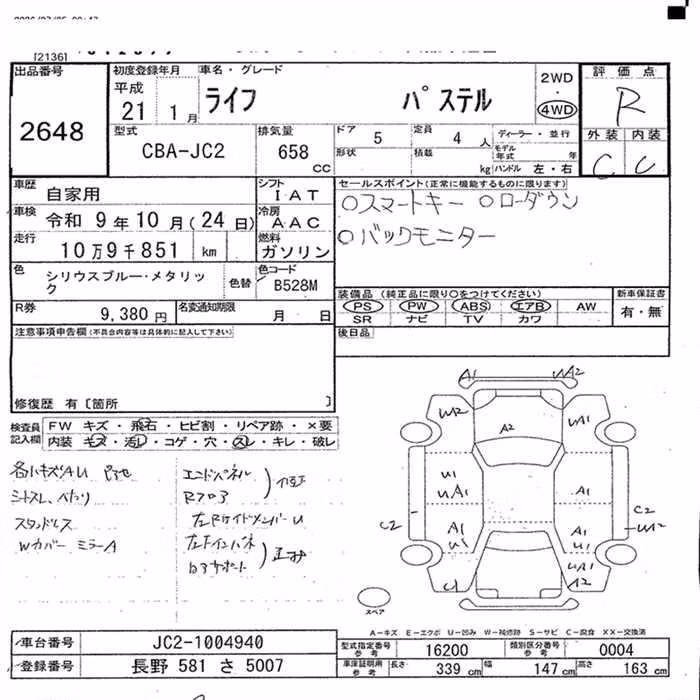 [2136]
出品番号
2648
初度登録年月
平成
21 1月
車名・グレード
ライフ パステル
2WD
・
4WD
評価点
R
外装 内装
C C
型式
CBA-JC2
排気量
658
CC
ドア
5
定員
4 人
形状
積載
kg
ディーラー・並行
モデル年式 年
ハンドル 左・右
車歴
自家用
シフト
IAT
車検
令和 9年10月(24日)
冷房
AAC
走行
10万9千851 km
燃料
ガソリン
色
シリウスブルー・メタリック
色替
色コード
B528M
R券
9,380 円
名変通知期限
月 日
セールスポイント(正常に機能するものに限ります)
○スマートキー ○ローダウン
○バックモニター
装備品 (純正品に限り○をつけてください)
PS PW ABS エアB AW
SR ナビ TV カワ
新車保証書
有・無
後日品
注意事項申告欄(不具合内容等は具体的に記入して下さい)
修復歴 有〔箇所 〕
検査員記入欄
FW キズ・飛石・ヒビ割・リペア跡・×要
内装 キズ・汚レ・コゲ・穴・スレ・キレ・破レ
各小キズAU
シートスレ、へたり
スタンドレス
Wカバー ミラーA
エンドパネル
Rフロア
左Rサイドメンバー U
左Fインパネ
コアサポート
A1
UA2
UA2
UA1
A2
U1
UA1
A1
C2
A1
U1
A1
U1
C2
UA2
C1
UA1
A2
スペア
A-キズ E-エクボ U-凹み W-補修跡 S-サビ C-腐食 XX-交換済
車台番号
JC2-1004940
登録番号
長野 581 さ 5007
型式指定番号
参考
16200
類別区分番号
参考
0004
車庫証明用
参考
長さ 339 cm
幅 147 cm
高さ 163 cm